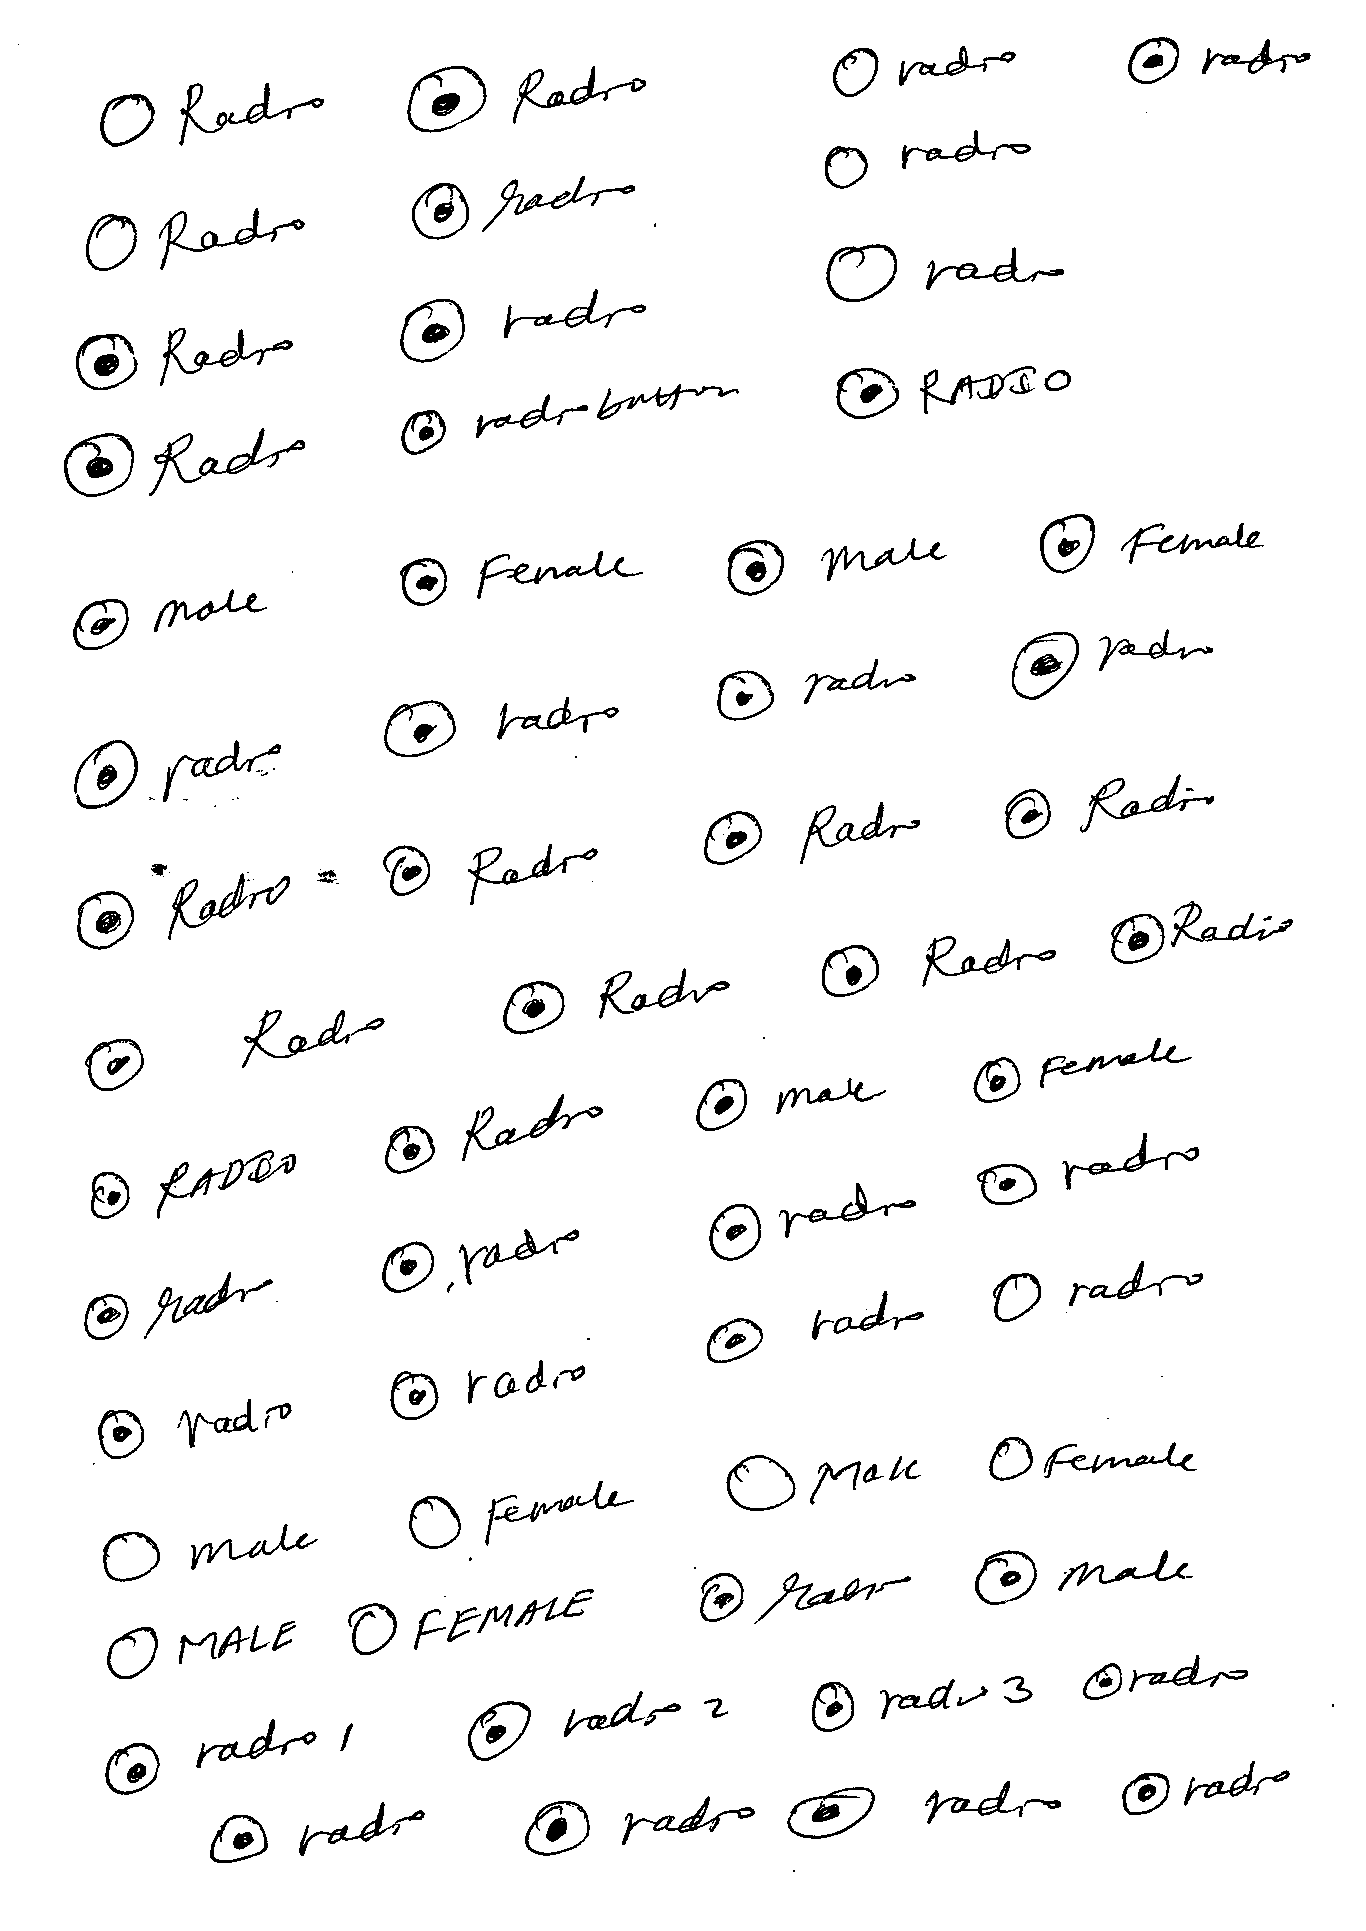 Radio Radio radio radio
radio
Radio radio
radio
Radio radio
Radio radio button RADIO
Male Female Male Female
radio radio radio radio
Radio Radio Radio Radio
Radio Radio Radio Radio
RADIO Radio male Female
radio radio radio radio
radio radio radio radio
male Female Male Female
MALE FEMALE radio male
radio 1 radio 2 radio 3 radio
radio radio radio radio